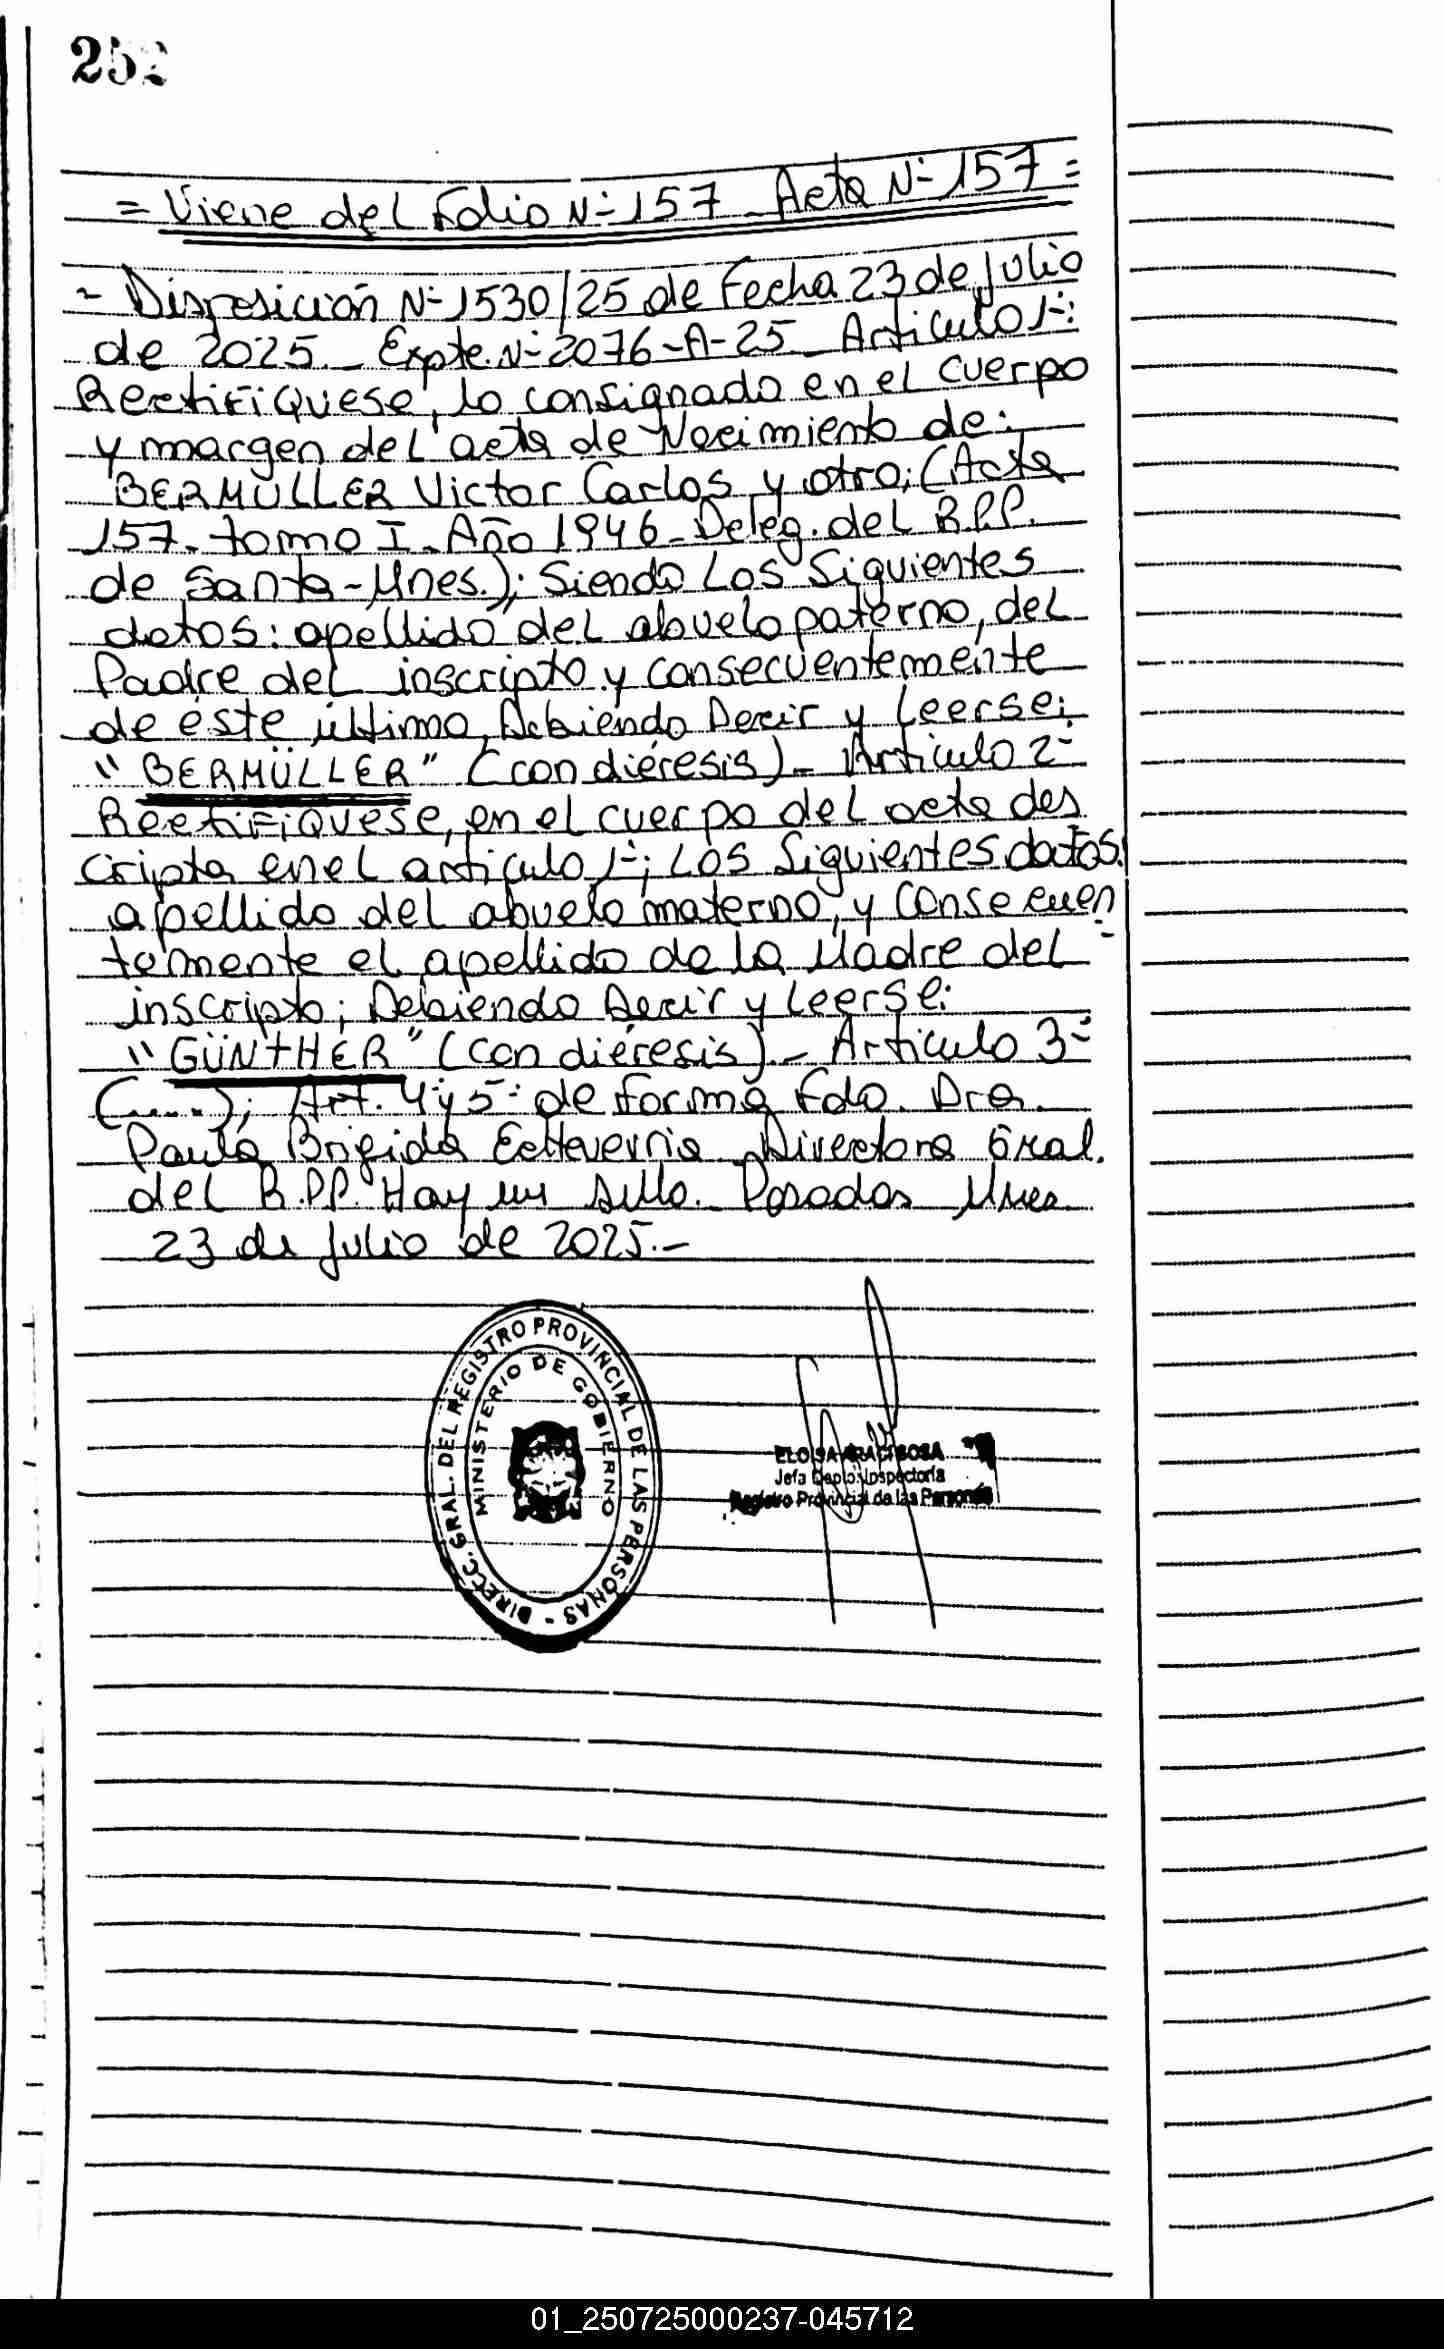 252
= Viene del Folio N° 157 - Acta N° 157 =
- Disposición N° 1530/25 de Fecha 23 de Julio
de 2025.- Expte. N° 2076-A-25 - Artículo 1°:
Rectifíquese, lo consignado en el cuerpo
y margen del acta de Nacimiento de:
BERMULLER Victor Carlos y otro; (Acta
157 - tomo I - Año 1946 - Deleg. del R.P.P.
de Santa - Mnes.); Siendo Los Siguientes
datos: apellido del abuelo paterno, del
Padre del inscripto y consecuentemente
de éste último, Debiendo Decir y Leerse:
"BERMÜLLER" (con diéresis) - Artículo 2°
Rectifíquese, en el cuerpo del acta des
cripta en el artículo 1°; Los Siguientes datos:
apellido del abuelo materno, y consecuen
temente el apellido de la Madre del
inscripto; Debiendo Decir y Leerse:
"GÜNTHER" (con diéresis) - Artículo 3°
(.....); Art. 4° y 5° de forma Fdo. Dra.
Paula Brigida Echeverria Directora Gral.
del R.P.P. Hay un sello. Posadas Mnes
23 de Julio de 2025.-
DIRECC. GRAL. DEL REGISTRO PROVINCIAL DE LAS PERSONAS -
MINISTERIO DE GOBIERNO
ELOISA SOSA
Jefa Depto. Inspectoría
Registro Provincial de las Personas
01_250725000237-045712